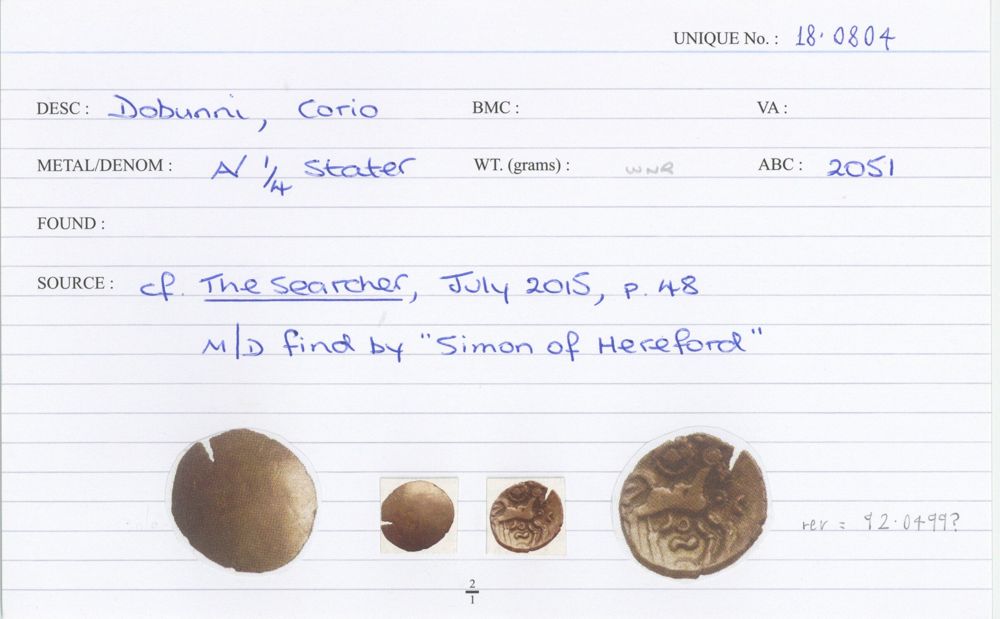 UNIQUE No. : 18.0804
DESC : Dobunni, Corio BMC : VA :
METAL/DENOM : A/ 1/4 Stater WT. (grams) : WNR ABC : 2051
FOUND :
SOURCE : cf. The Searcher, July 2015, p. 48
M/D find by "Simon of Hereford"
rev = 92.0499?
2
1